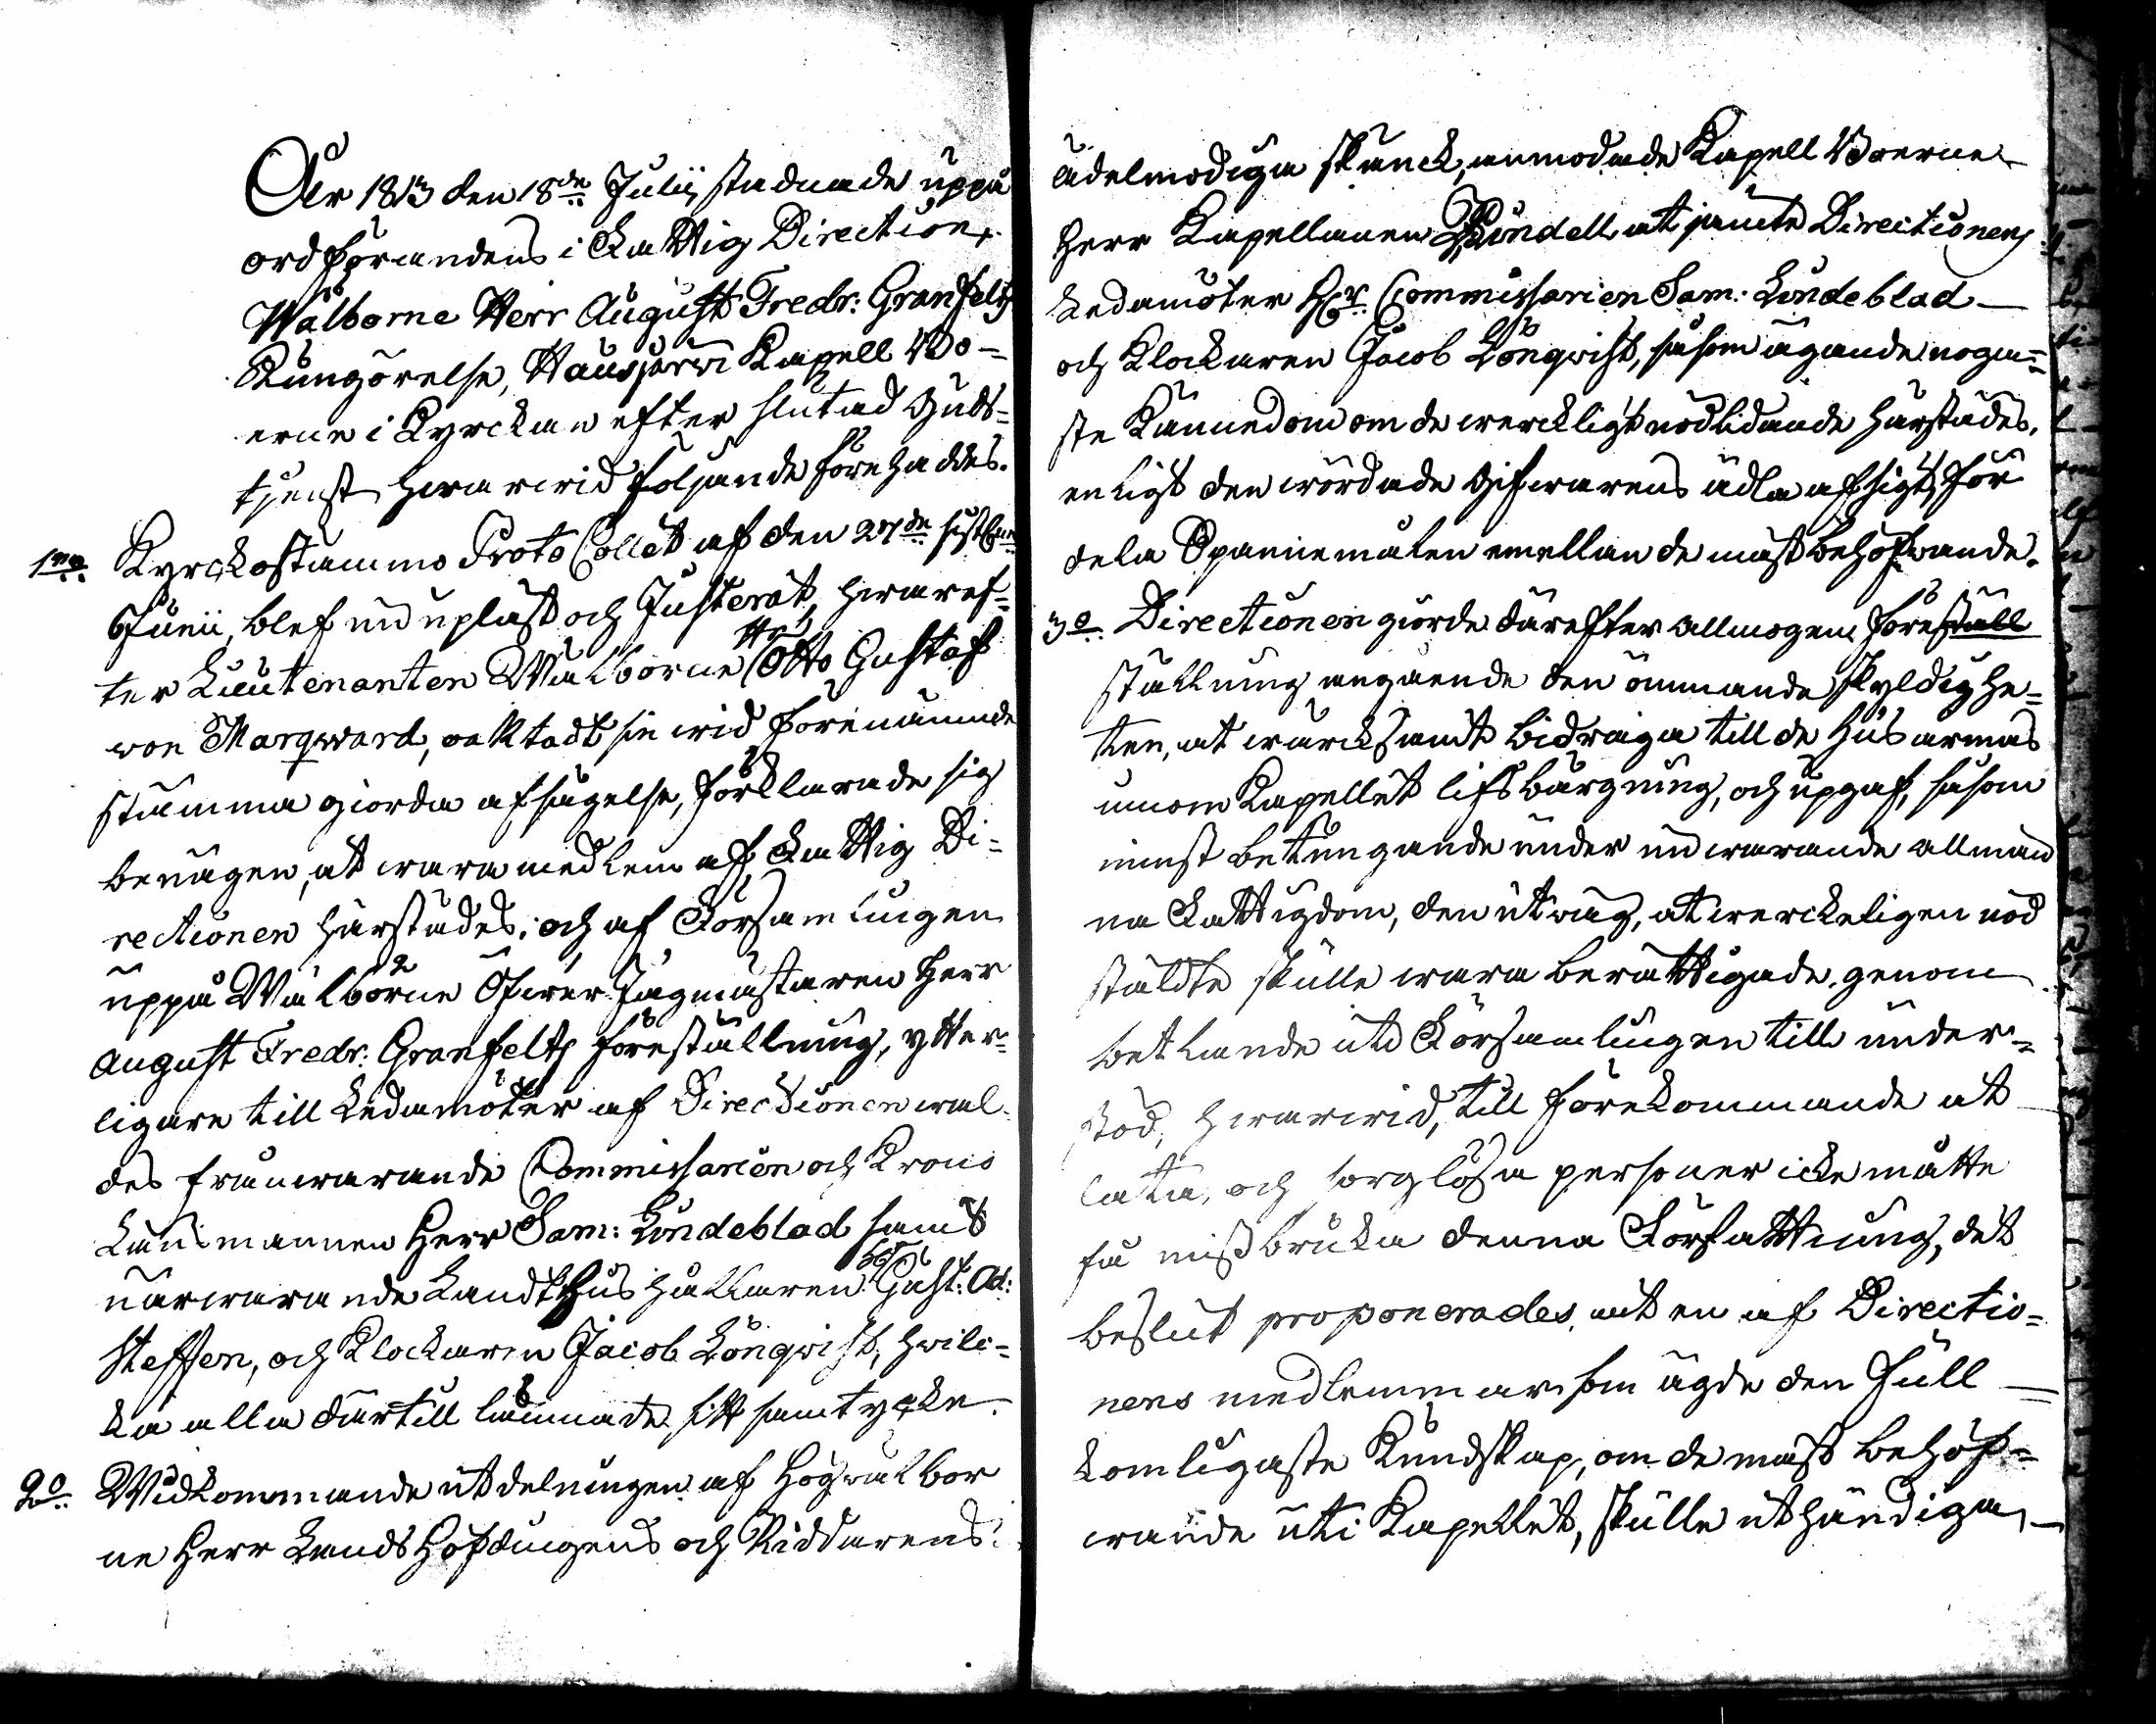 År 1813 den 18de Julii, stadnade uppå
ordförandens i Fattig Direction,
Wälborne Herr August Fredr: Granfelts
Kungörelse, Hausjärwi Kapell Bo-
erne i Kyrckan efter slutad Guds-
tjenst hwarwid följande förehades.
1mo Kyrckostämmo Protocollet af den 27de sistl.
Junii, blef nu upläst och Justerat, hwaref-
ter Lieutenanten Wälborne Hr Otto Gustaf
von Marqward, oaktadt sin wid förenämnde
stämma giorda afsägelse, förklarade sig
benägen, at wara medlem af Fattig Di-
rectionen härstädes; och af Församlingen
uppå Wälborne Öfwer Jägmästaren Herr
August Fredr: Granfelts föreställning, ytter-
ligare till Ledamöter af Directionen wal-
des frånwarande Commissarien och Krono
Länsmannen Herr Sam: Lundeblad samt
närwarande Landthushållaren Hr Gust: Ad:
Steffen, och Klockaren Jacob Lönqwist, hwil-
ka alla därtill lämnade sitt samtycke.
2o Widkommande utdelningen af Högwälbor
ne Herr Lands Höfdingens och Riddarens
ädelmodiga skänck, anmodade Kapell Boerne
Herr Kapellanen at jämte Directionens
Ledamöter Hr Commissarien Sam: Lundeblad
och Klockaren Jacob Lönqwist, såsom ägande noga-
ste Kännedom om de werckligt nödlidande härstädes,
enligt den wördade Gifwarens ädla afsigt, för
dela Spannemålen emellan de mäst behöfwande.
3o Directionen giorde därefter allmogen föreställ
ställning angående den ömmande skyldighe-
ten, at wärcksamt bidraga till de Husarmas
innom Kapellet lifsbärgning, och upgaf, såsom
minst betungande under nu warande allmän
na Fattigdom, den utwäg, at werckeligen nöd
stäldte skulle wara berättigade genom
betlande uti Församlingen till under-
stöd; hwarwid, till förekommande at
lata, och sorglösa personer icke måtte
få missbruka denna Författning, det
beslut proponerades, at en af Directio-
nens medlemmar som ägde den full
komligaste Kundskap, om de mäst behöf-
wande uti Kapellet, skulle uthändiga